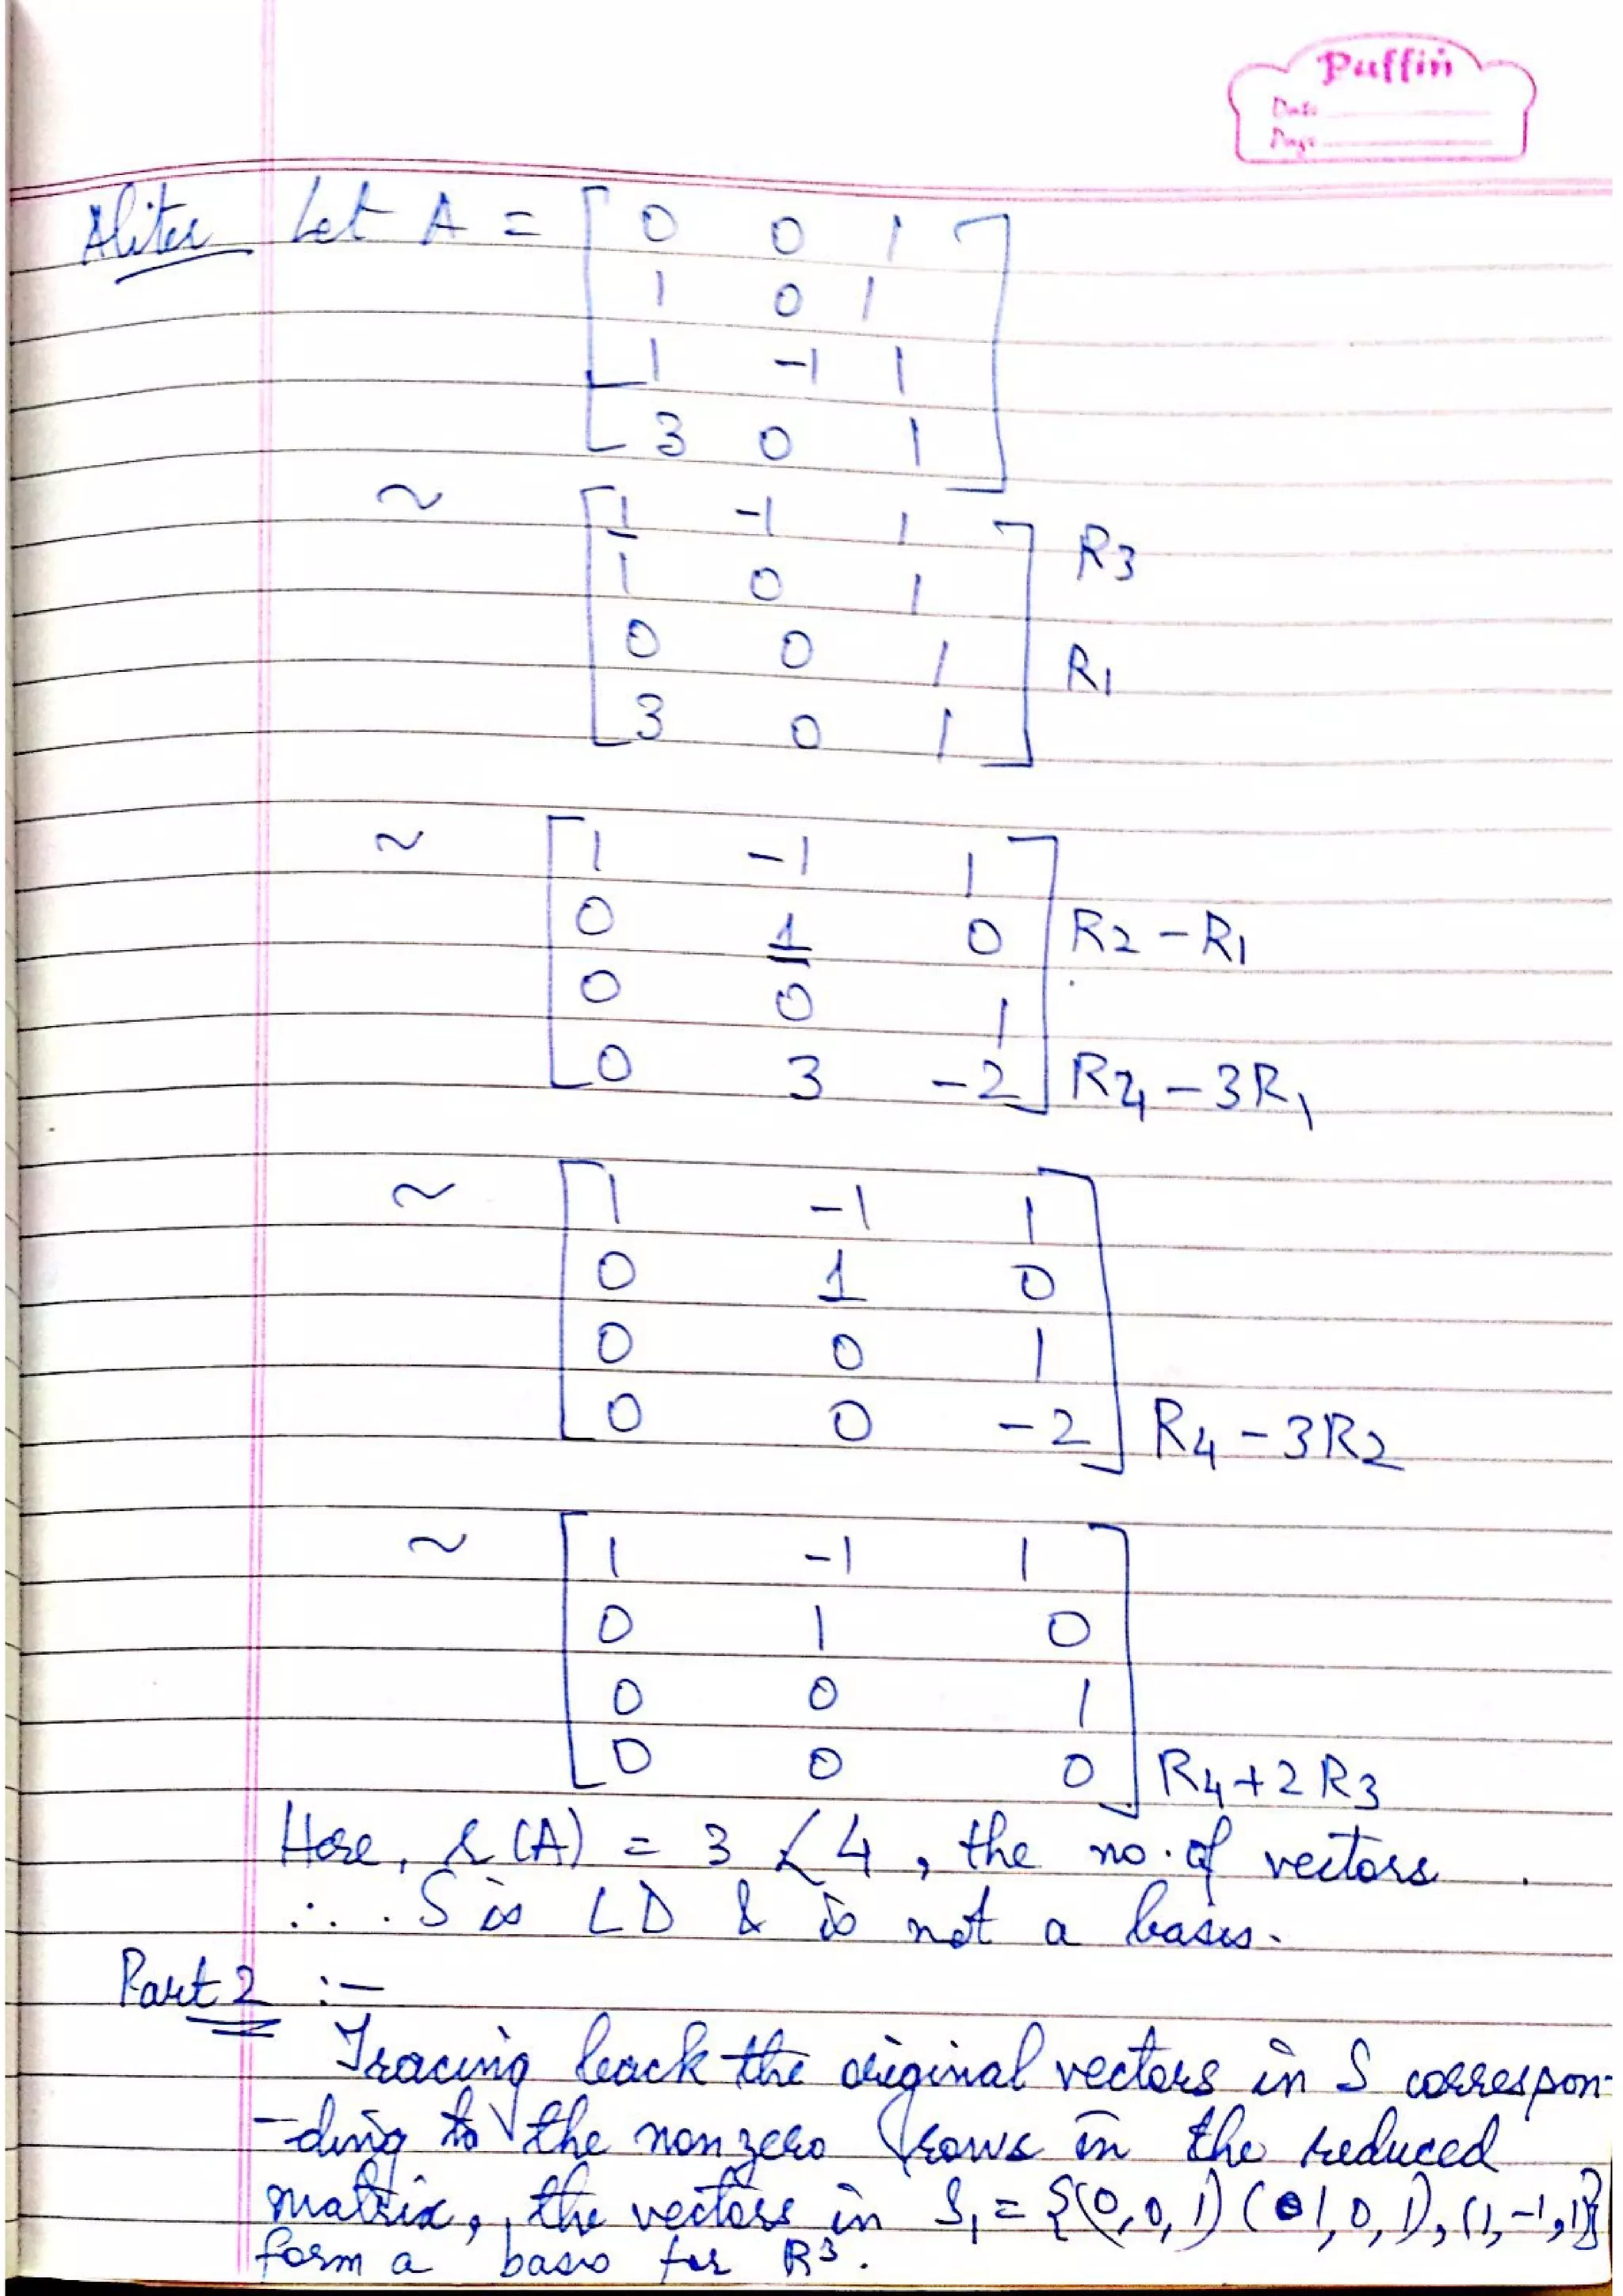 Puffin
Date
Page
Aliter Let A = [ 0 0 1
1 0 1
1 -1 1
3 0 1 ]
~ [ 1 -1 1 R3
1 0 1
0 0 1 R1
3 0 1 ]
~ [ 1 -1 1
0 1 0 R2 - R1
0 0 1
0 3 -2 ] R4 - 3R1
~ [ 1 -1 1
0 1 0
0 0 1
0 0 -2 ] R4 - 3R2
~ [ 1 -1 1
0 1 0
0 0 1
0 0 0 ] R4 + 2R3
Here, r(A) = 3 < 4, the no. of vectors
∴ S is LD & is not a basis.
Part 2 :-
Tracing back the original vectors in S correspon-
-ding to the nonzero rows in the reduced
matrix, the vectors in S1 = {(0,0,1) (1,0,1), (1,-1,1)}
form a basis for R³.